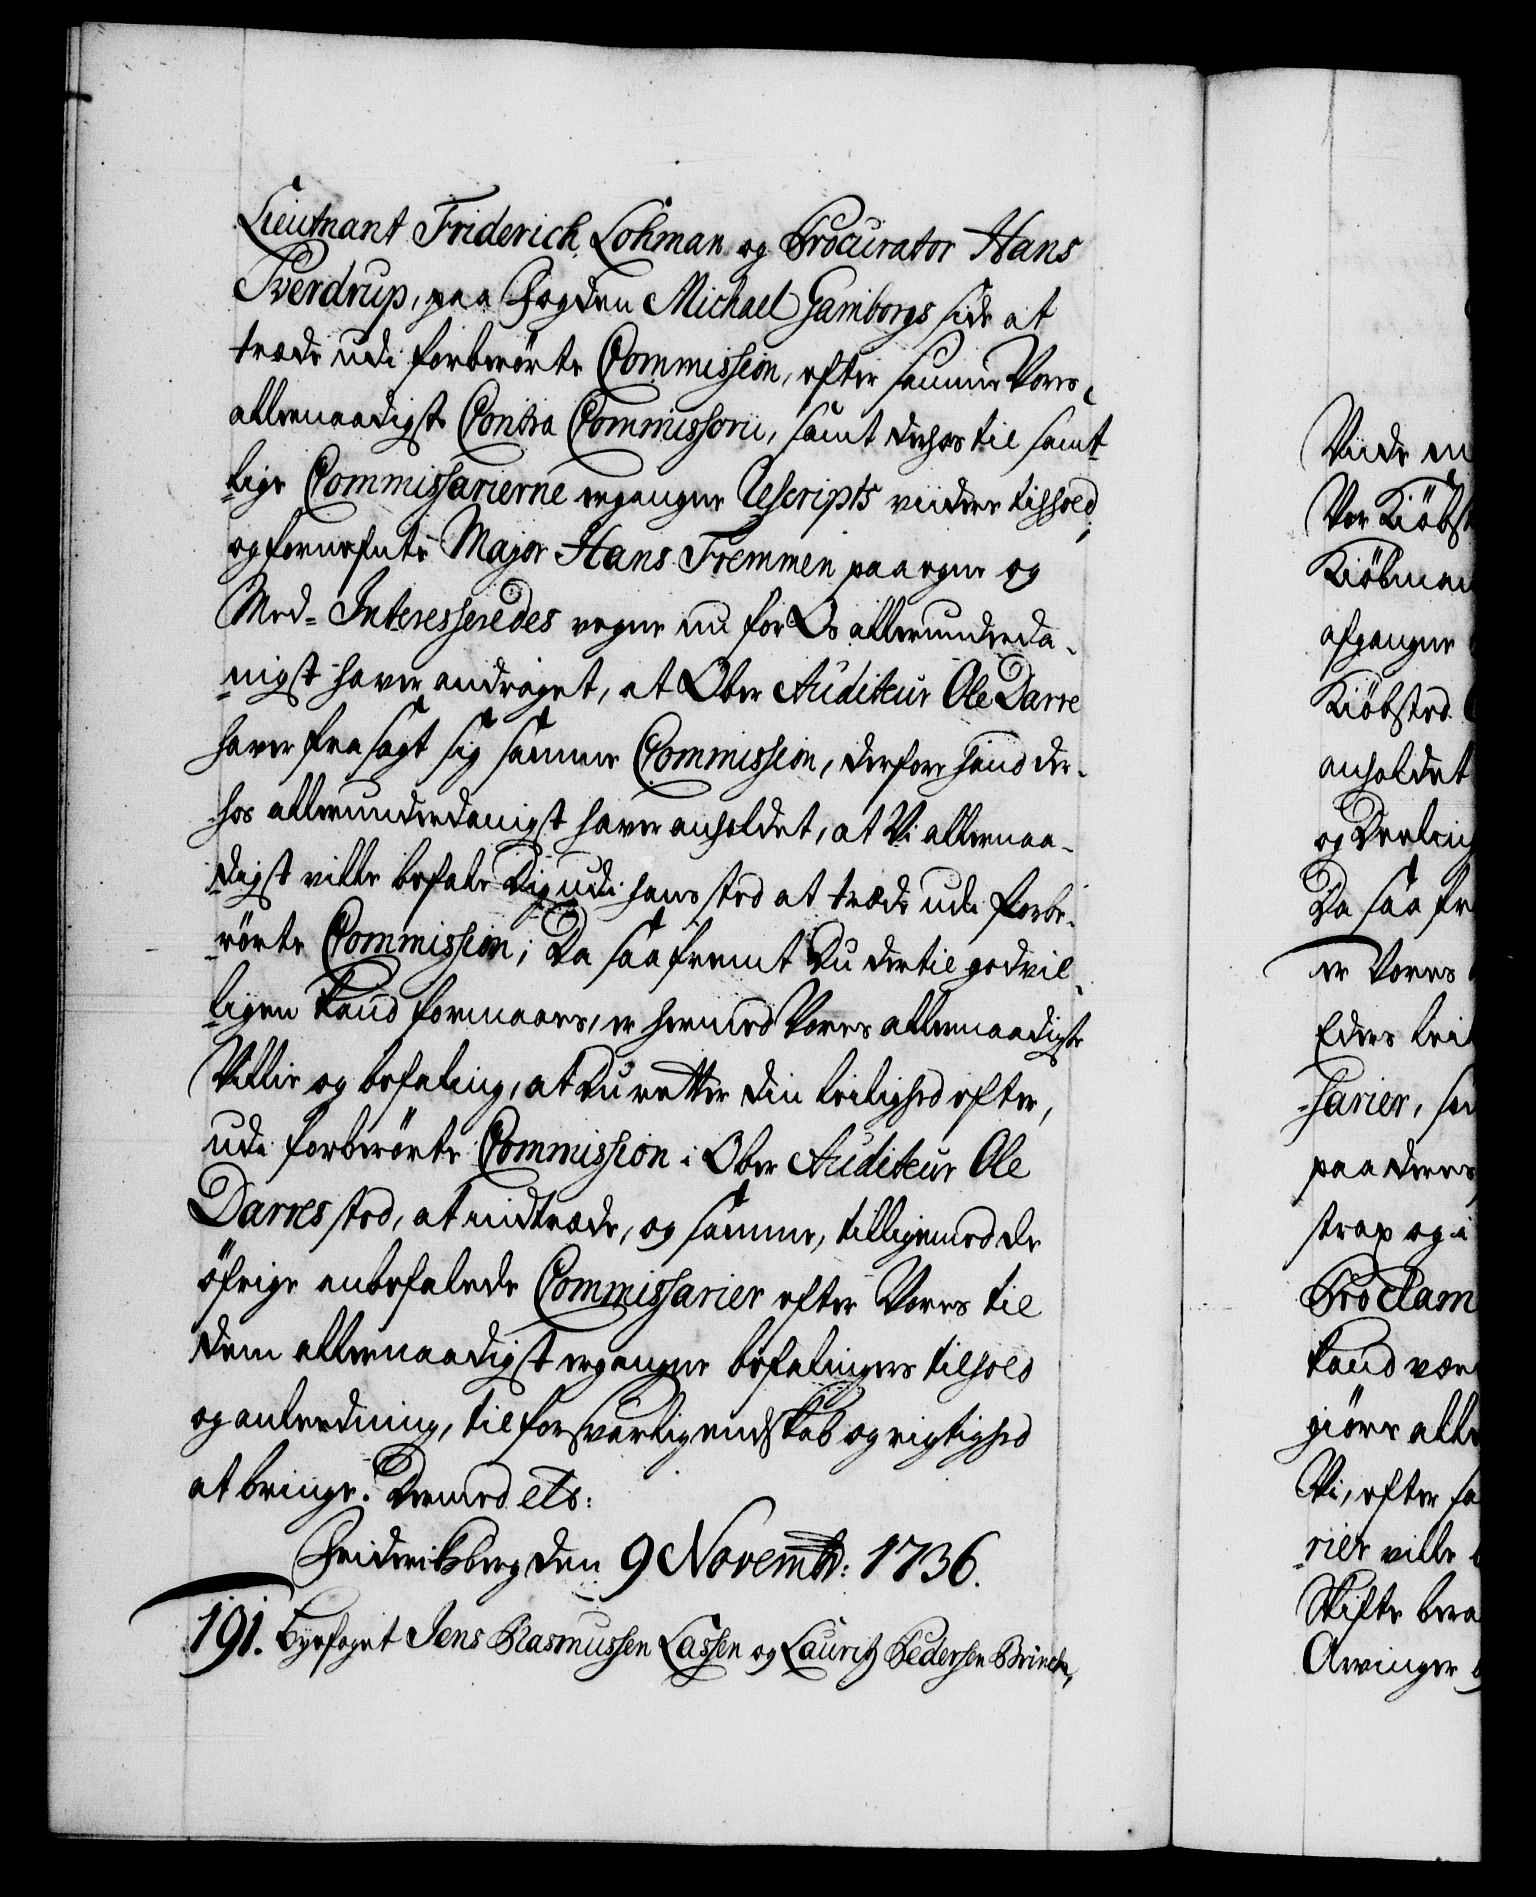 Lieutnant Friderich Lohman og Procurator Hans
Sverdrup, paa Fogden Michael Gamborgs side at
træde udi forberörte Commission, efter samme Vores
allernaadigste Contra Commissorii, samt derhos til samt-
-lige Commissarierne ergangne Rescripts viidere tilhold,
og fornefnte Major Hans Fremmen paa egne og
Med-Interesseredes vegne nu for Os allerunderda-
-nigst haver andraget, at Ober Auditeur Ole Darre
haver frasagt sig samme Commission, derfore hand der-
-hos allerunderdanigst haver anholdet, at Vi allernaa-
-digst ville befale Dig udi hans sted at træde udi forbe-
-rörte Commission; Da saafremt Du dertil godvil-
-ligen kand formaaes, er hermed Vores allernaadigste
Villie og befaling, at Du retter din leilighed efter,
udi forberörte Commission i Ober Auditeur Ole
Darres sted, at indtræde, og samme, tilligemed de
öfrige anbefalede Commissarier efter Vores til
dem allernaadigst ergangne befalingers tilhold
og anledning, til forsvarlig endskab og rigtighed
at bringe. Dermed etc:
Friderichsberg den 9 Novembr: 1736.
191. Byefoget Jens Rasmussen Lassen og Lauritz Pedersen Brinck,
Viide en
Vor Kiöbst
Kiöbman
afgangne
Kiöbsted
anholdet
og Deeling
Da saa fr
er Vores
Eders leil
-sarier, sa
paa deres
strax og i
Proclam
kand vær
giöre alle
Vi, efter sa
-rier ville
Skifte bera
Arvinger